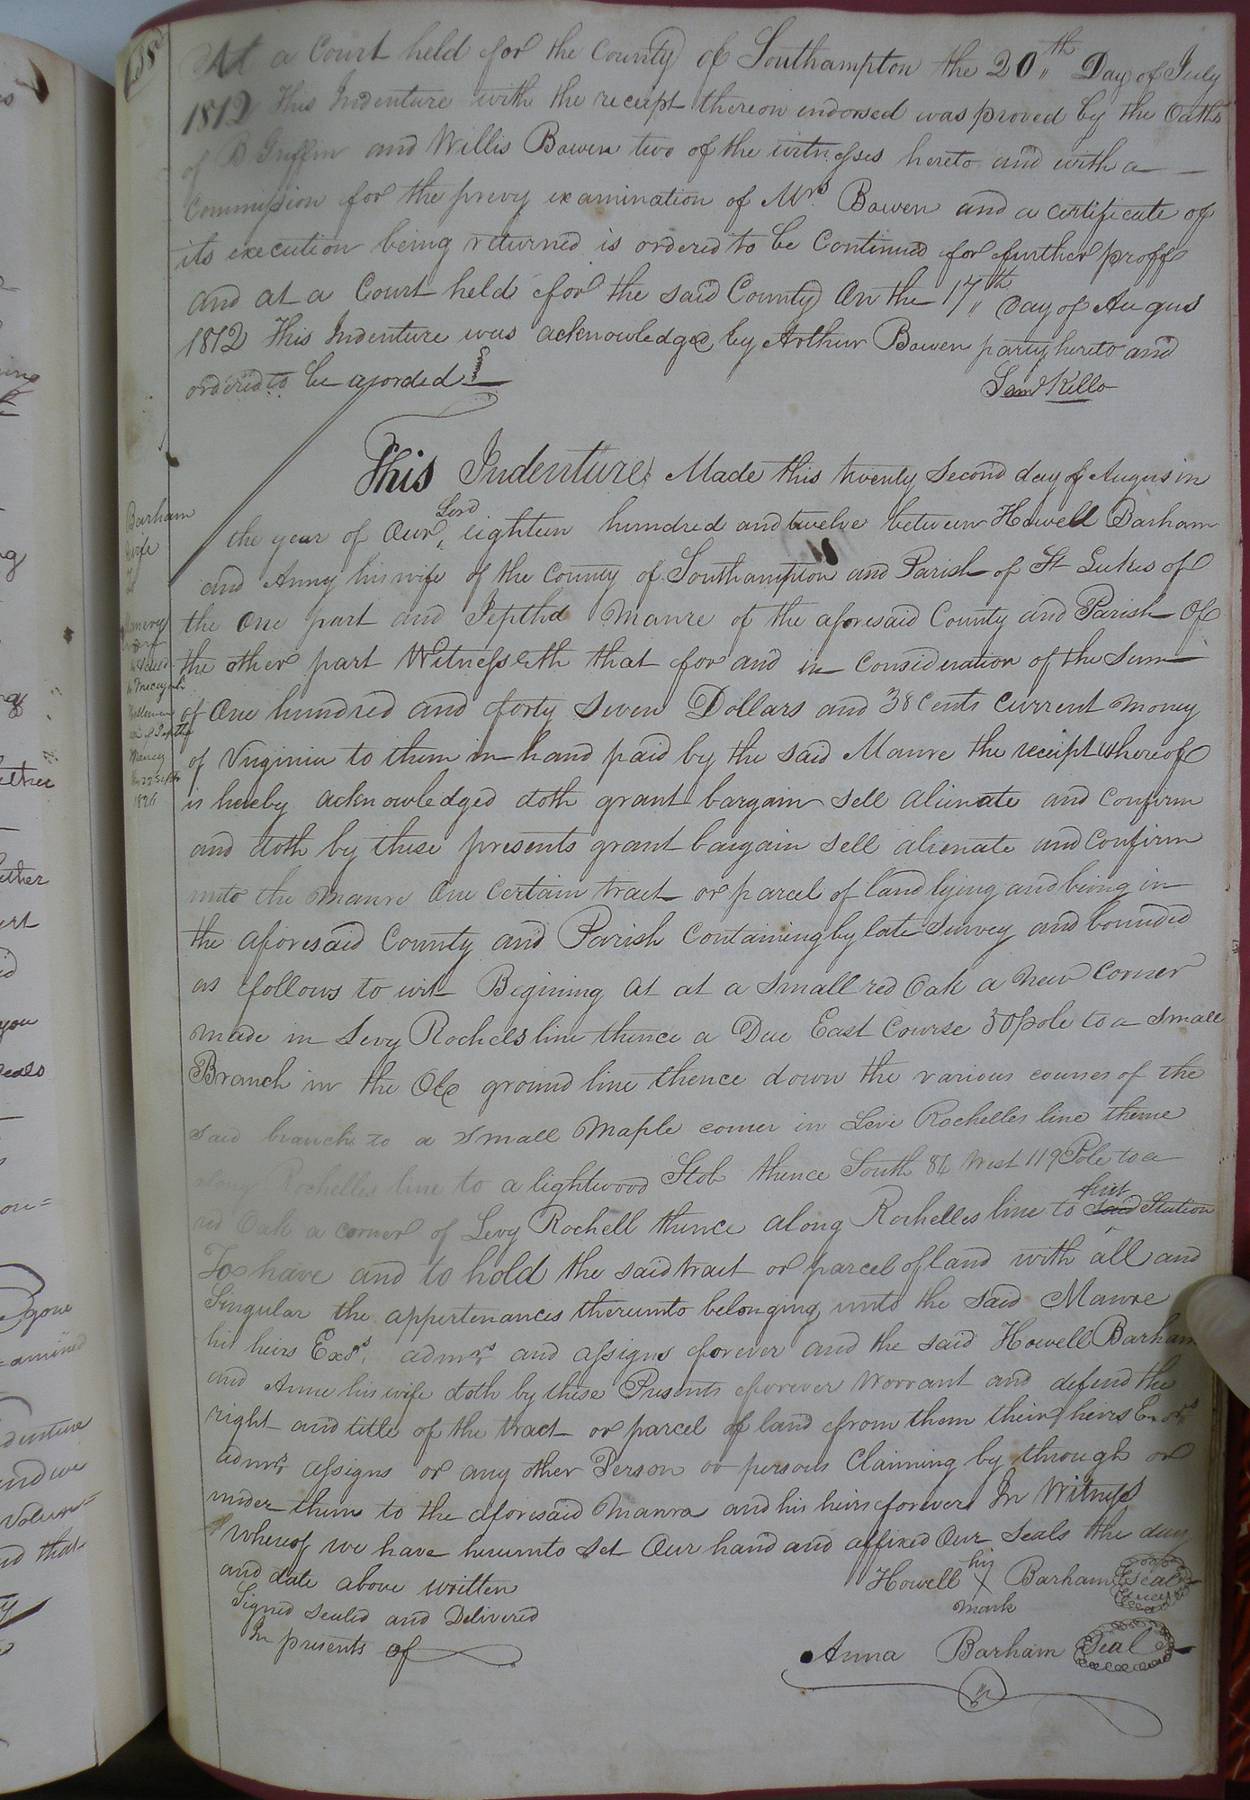 At a Court held for the County of Southampton the 20th Day of July
1812 This Indenture with the receipt thereon endorsed was proved by the Oaths
of B Griffin and Willis Bowen two of the witnesses hereto and with a
Commission for the prevy examination of Mrs Bowen and a certificate of
its execution being returned is ordered to be Continued for further proff
and at a Court held for the said County On the 17th Day of Augus
1812 This Indenture was acknowledged by Arthur Bowen party hereto and
ordered to be recorded
Saml Kello
This Indenture Made this twenty Second day of Augus in
the year of Our Lord eighteen hundred and twelve between Howell Barham
and Anny his wife of the County of Southampton and Parish of St Lukes of
the One part and Jeptha Manre of the aforesaid County and Parish Of
the other part Witnesseth that for and in consideration of the Sum
of One hundred and forty Seven Dollars and 38 Cents Current Money
of Virginia to them in hand paid by the said Manre the receipt whereof
is hereby acknowledged doth grant bargain Sell alienate and Confirm
and doth by these presents grant bargain Sell alienate and Confirm
unto the Manre One Certain tract or parcel of land lying and being in
the aforesaid County and Parish Containing by late Survey and bounded
as follows to wit Begining at at a Small red Oak a New Corner
made in Levy Rochels line thence a Due East Course 50 pole to a Small
Branch in the Old ground line thence down the various courses of the
said branch to a small Maple corner in Levi Rochelles line thence
along Rochelles line to a lightwood Stob thence South 86 West 119 Pole to a
red Oak a corner of Levy Rochell thence along Rochelles line to said first Station
To have and to hold the said tract or parcel of land with all and
Singular the appertenances thereunto belonging unto the Said Manre
his heirs Exrs. admrs and assigns forever and the said Howell Barham
and Anne his wife doth by these Presents forever Worrant and defend the
right and title of the tract or parcel of land from them their heirs Exors
admrs assigns or any other Person or persons Claiming by through or
under them to the aforesaid Manra and his heirs forever In Witness
Whereof we have hereunto Set Our hand and affixed Our Seals the day
and date above written
Signed sealed and Delivered
In presents of
Howell his X mark Barham Seal
Anna Barham Seal
Barham
wife
To
1826